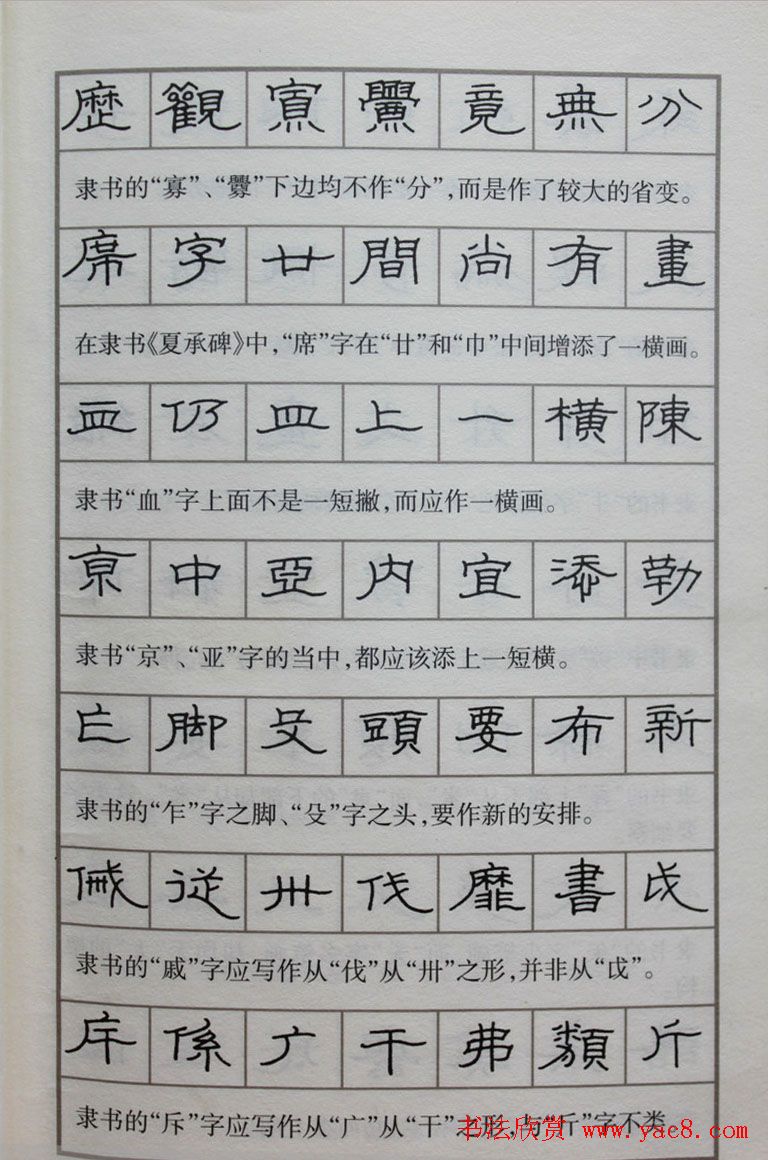 歷觀寡釁竟無分
隶书的“寡”、“釁”下边均不作“分”,而是作了较大的省变。
席字廿間尚有畫
在隶书《夏承碑》中,“席”字在“廿”和“巾”中间增添了一横画。
血仍皿上一橫陳
隶书“血”字上面不是一短撇,而应作一横画。
京中亞内宜添勒
隶书“京”、“亚”字的当中,都应该添上一短横。
乍脚殳頭要布新
隶书的“乍”字之脚、“殳”字之头,要作新的安排。
戚從卅伐靡書戉
隶书的“戚”字应写作从“伐”从“卅”之形,并非从“戉”。
斥係广干弗類斤
隶书的“斥”字应写作从“广”从“干”之形,与“斤”字不类
书法欣赏 www.yac8.com